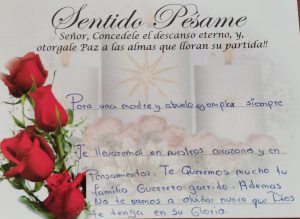 Sentido Pésame
Señor, Concedele el descanso eterno, y,
otorgale Paz a las almas que lloran su partida!!
Para una madre y abuela ejemplar siempre
Te llevaremos en nuestros corazones y en
Pensamentos. Te Queremos mucho tu
familia Guerrero garrido. Ademas
No te vamos a olvidar nunca que Dios
te tenga en su Gloria.